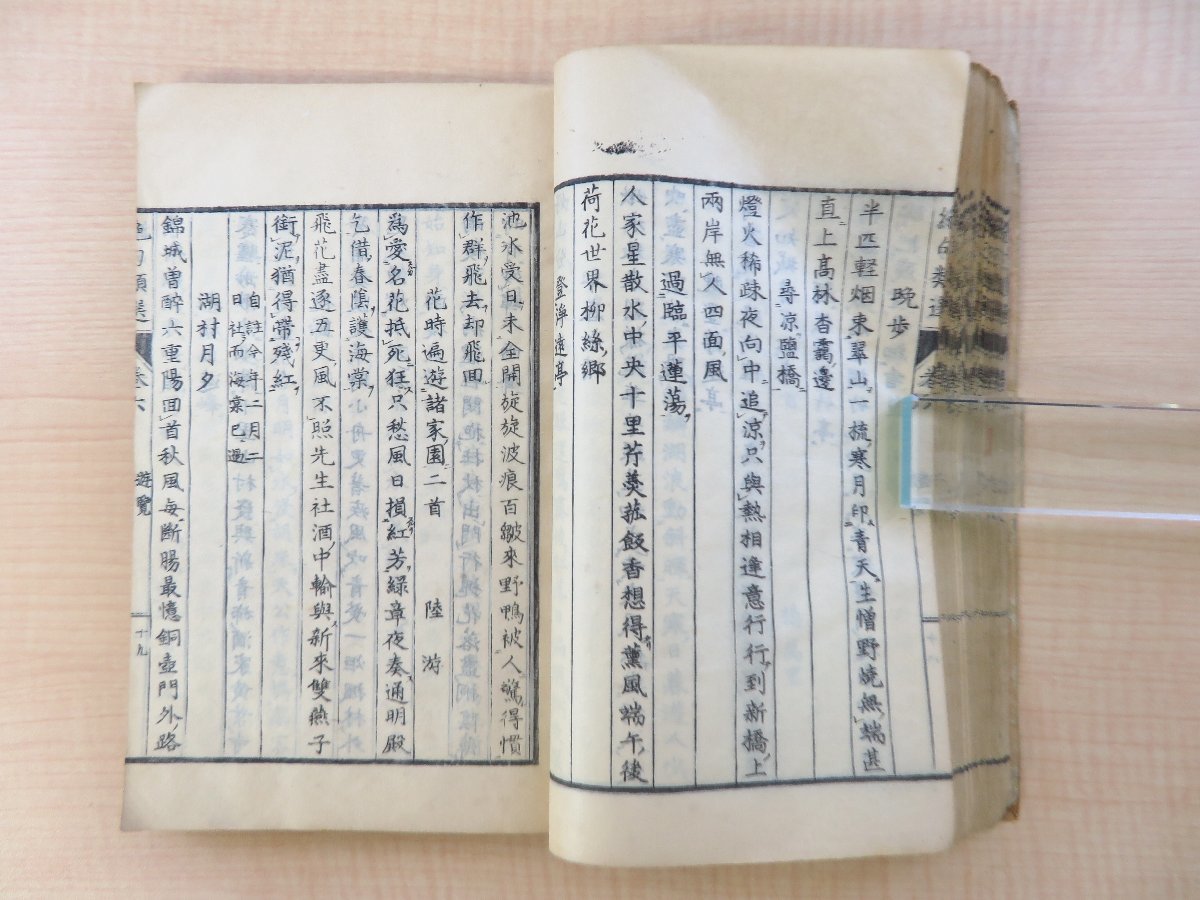 晩歩
半匹軽烟束翠山一梳寒月印青天生憎野焼無端甚
直上高林杳靄邊
尋涼鹽橋
燈火稀疎夜向中追涼只與熱相逢意行行到新橋上
兩岸無人四面風
過臨平蓮蕩
人家星散水中央十里芹羮菰飯香想得薫風端午後
荷花世界柳絲郷
登淨遠亭
池氷受日未全開旋旋波痕百皺來野鴨被人驚得慣
作群飛去却飛回
花時遍遊諸家園二首 陸游
為愛名花抵死狂只愁風日損紅芳緑章夜奏通明殿
乞借春陰護海棠
飛花盡逐五更風不照先生社酒中輸與新來雙燕子
銜泥猶得帶殘紅
自註今年二月二
日社而海棠已過
湖村月夕
錦城曽醉六重陽回首秋風毎斷腸最憶銅壺門外路
絶句類選 巻六 遊覽 十九